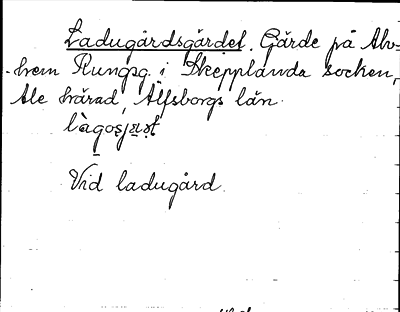 Ladugårdsgärdet. Gärde på Abo-
hem Rungsg. i Skepplanda socken,
Ale härad, Älfsborgs län.
Vid ladugård.